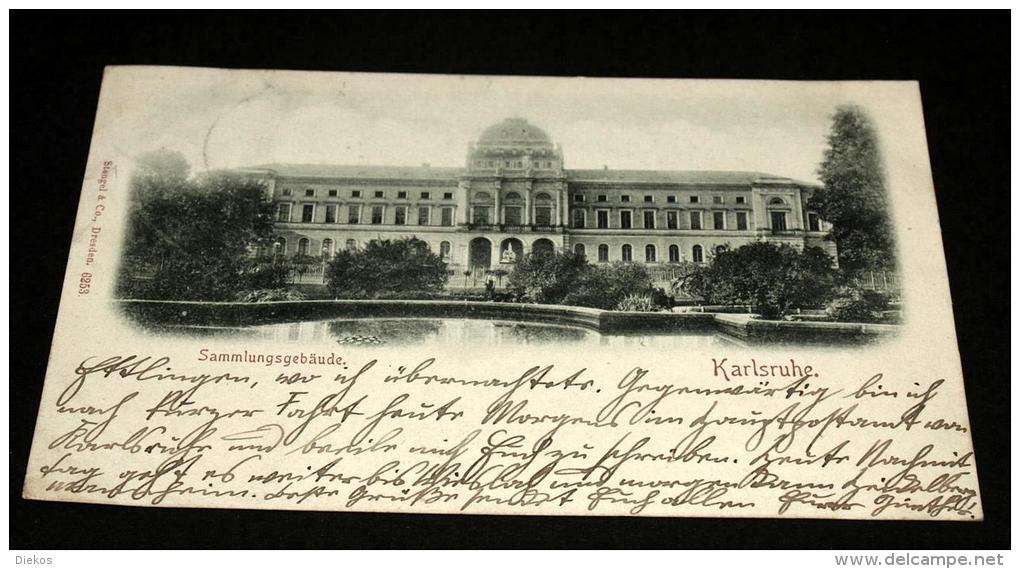 Stengel & Co., Dresden. 6253.
Sammlungsgebäude.
Karlsruhe.
Ettlingen, wo ich übernachtete. Gegenwärtig bin ich
nach kurzer Fahrt heute Morgens im Hauptpostamt von
Karlsruhe und beeile mich Euch zu schreiben. Heute Nachmit
tag geht es weiter bis und morgen dann Heidelberg
Beste Grüße sendet Euch allen Eurer
Diekos
www.delcampe.net